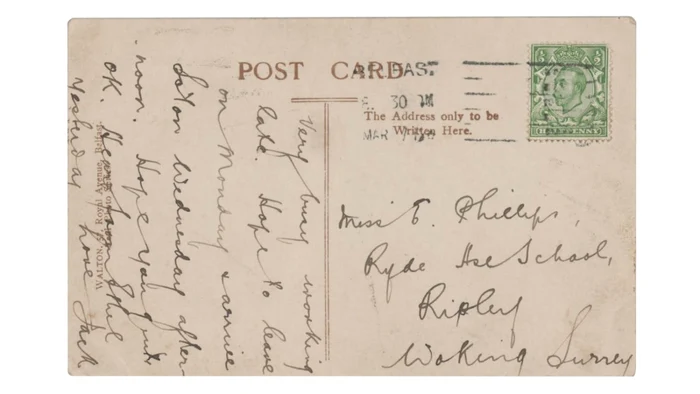 POST CARD
BELFAST
30 PM
MAR
The Address only to be
Written Here.
HALFPENNY
Miss E. Phillips,
Ryde Hse School,
Ripley
Woking Surrey
Very busy working
late. Hope to leave
on Monday & arrive
Wednesday after-
noon. Hope you quite
OK. Hear from Ethel
Yesterday love Jack
WALTON, Royal Avenue, Belfast.